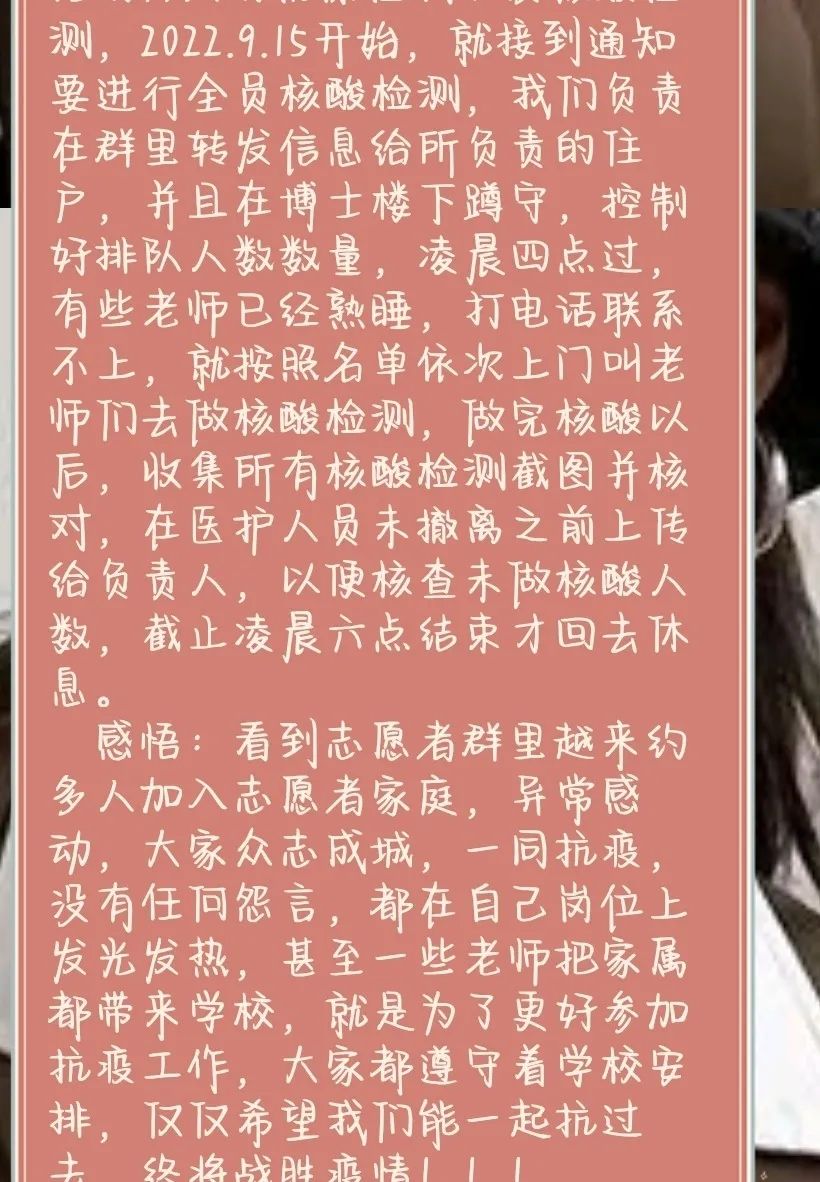 测，2022.9.15开始，就接到通知
要进行全员核酸检测，我们负责
在群里转发信息给所负责的住
户，并且在博士楼下蹲守，控制
好排队人数数量，凌晨四点过，
有些老师已经熟睡，打电话联系
不上，就按照名单依次上门叫老
师们去做核酸检测，做完核酸以
后，收集所有核酸检测截图并核
对，在医护人员未撤离之前上传
给负责人，以便核查未做核酸人
数，截止凌晨六点结束才回去休
息。
感悟：看到志愿者群里越来约
多人加入志愿者家庭，异常感
动，大家众志成城，一同抗疫，
没有任何怨言，都在自己岗位上
发光发热，甚至一些老师把家属
都带来学校，就是为了更好参加
抗疫工作，大家都遵守着学校安
排，仅仅希望我们能一起抗过
去，终将战胜疫情！！！